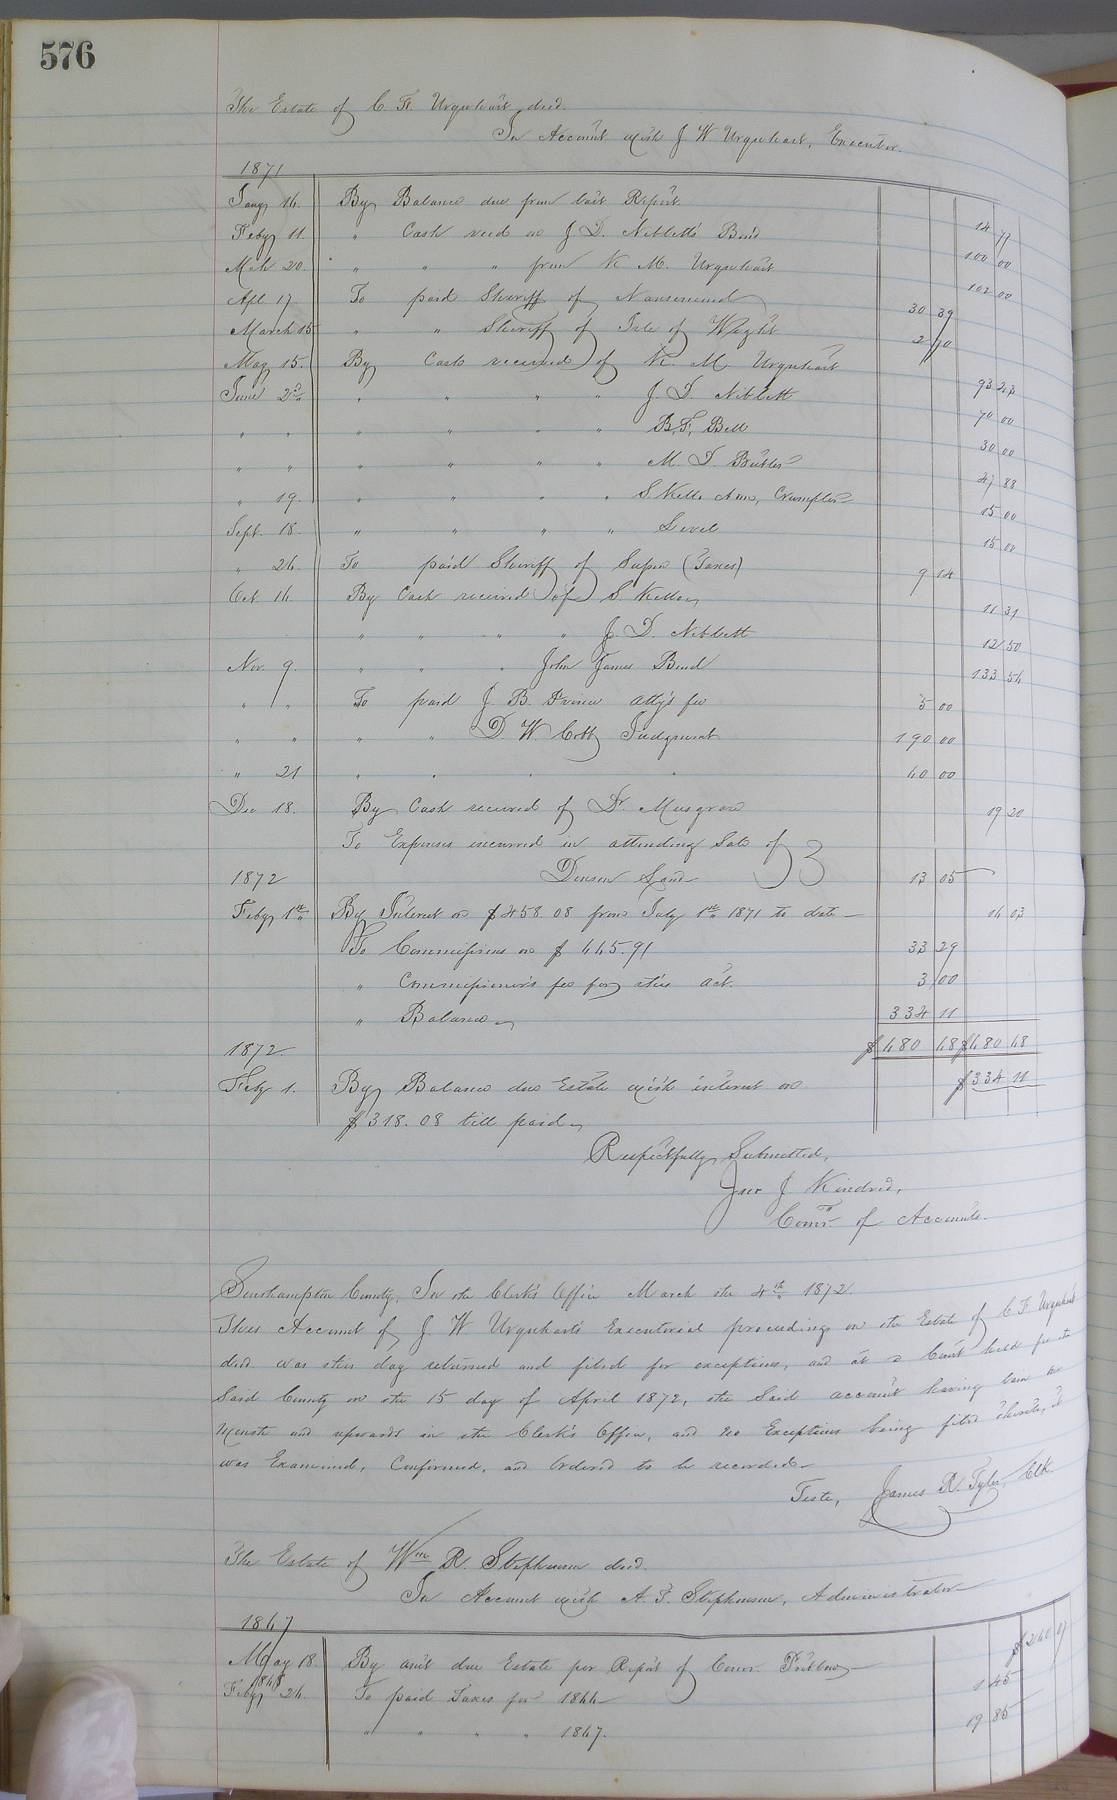 576
The Estate of C. F. Urquhart decd.
In Account with J W Urquhart, Executor.
1871
Jany 16. By Balance due from last Report 14 77
Feby 11. " Cash recd on J. D. Niblett's Bond 100 00
Mch 20. " " " from N. M. Urquhart 102 00
Apl. 17 To paid Sheriff of Nansemond 30 39
March 15 " " Sheriff of Isle of Wight 2 70
May 15. By Cash received of N. M. Urquhart 93 23
June 2d " " " " J. D. Niblett 70 00
" " " " " " B. F. Bell 30 00
" " " " " " M. D. Butler 47 88
" 19. " " " " S Kello Admr, Crumpler 15 00
Sept. 18. " " " " 15 00
" 26. To paid Sheriff of Supr (Taxes) 9 14
Oct 16 By Cash received of S. Kello 11 31
" " " " J. D. Niblett 12 50
Nov. 9. " " " John James Bond 133 56
" " To paid J. B. Prince Atty's fee 5 00
" " " " D. W. Cobb Judgment 190 00
" 21 " " " " 60 00
Dec 18. By Cash received of Dr. Musgrave 19 20
To Expenses incurred in attending Sale of
Denson Land 13 05
1872
Feby 1st By Interest on $458 08 from July 1st 1871 to date 16 03
To Commissions on $665.91 33 29
" Commissioner's fee for this act. 3 00
" Balance 334 11
1872. $680 68 $680 68
Feby 1. By Balance due Estate with interest on $334 11
$318.08 till paid
Respectfully Submitted,
Jno J Kindred,
Comr. of Accounts.
Southampton County, In the Clerk's Office March the 4th 1872.
This Account of J W Urquhart's Executorial proceedings on the Estate of C. F. Urquhart
decd. was this day returned and filed for exceptions, and at a Court held for the
Said County on the 15 day of April 1872, the Said account having lain one
Month and upwards in the Clerk's Office, and no Exceptions being filed thereto, it
was Examined, Confirmed, and Ordered to be recorded
Teste, James R. Tyler, Clk
The Estate of Wm R. Stephenson decd.
In Account with A. T. Stephenson, Administrator
1867
May 18. By amt due Estate per Report of Comr. Pretlow $260 07
1868
Feby 26. To paid Taxes for 1866 1 45
" " " " 1867. 19 85